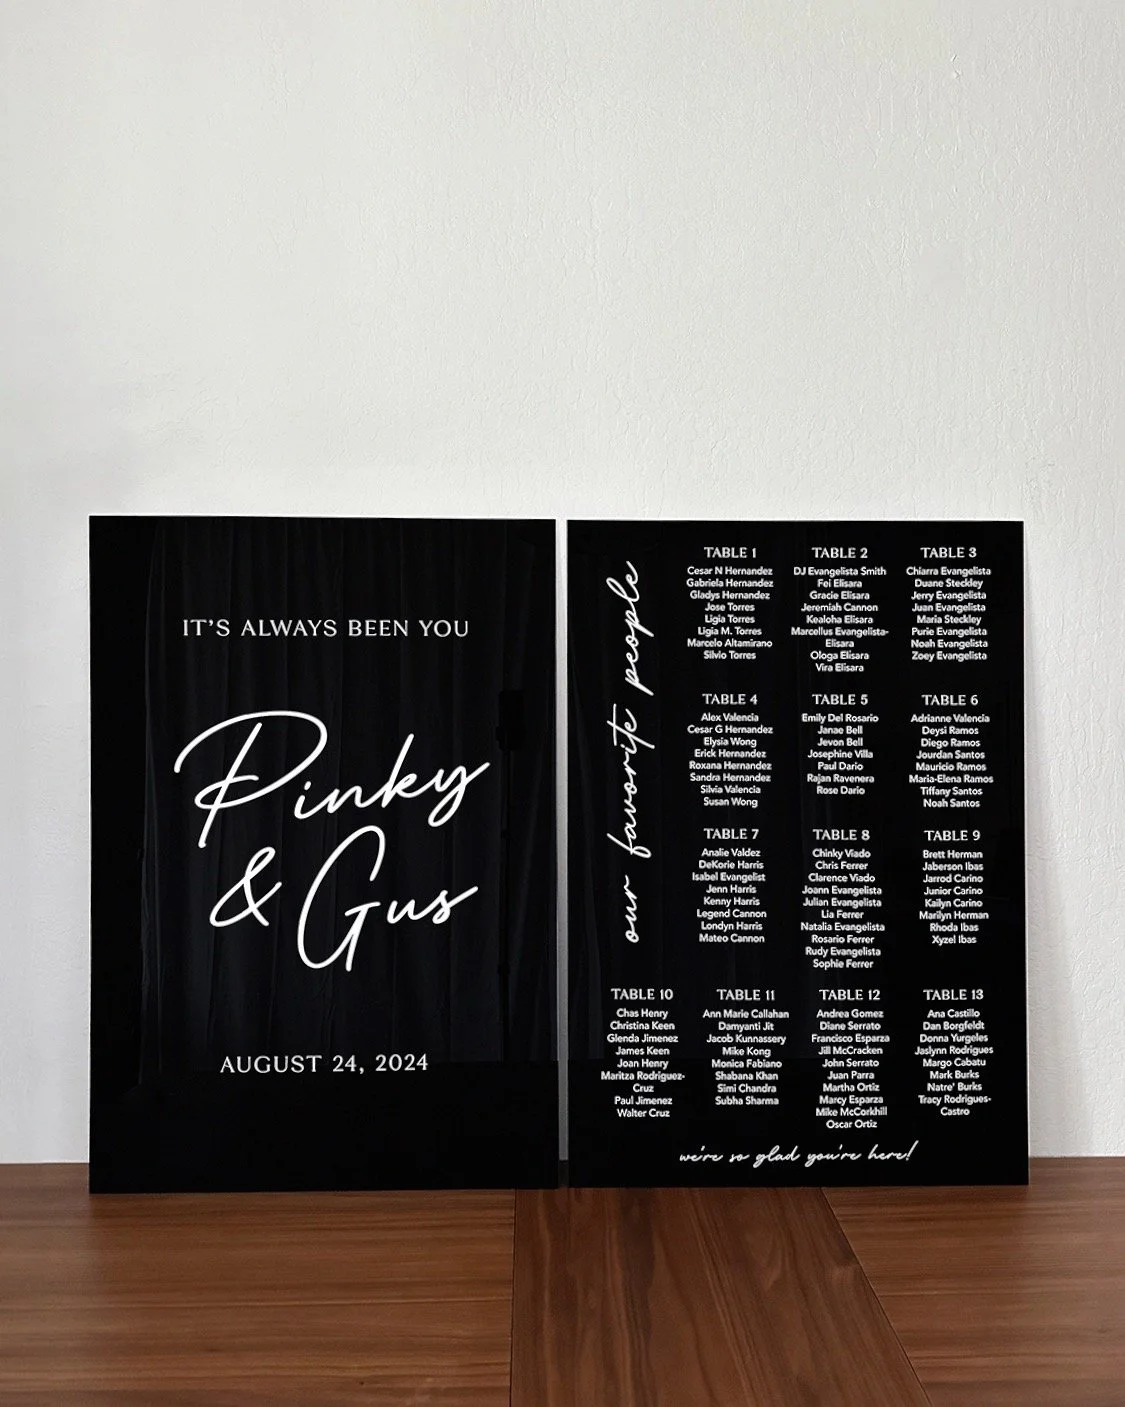 IT'S ALWAYS BEEN YOU
Pinky
& Gus
AUGUST 24, 2024
our favorite people
TABLE 1
Cesar N Hernandez
Gabriela Hernandez
Gladys Hernandez
Jose Torres
Ligia Torres
Ligia M. Torres
Marcelo Altamirano
Silvio Torres
TABLE 2
DJ Evangelista Smith
Fei Elisara
Gracie Elisara
Jeremiah Cannon
Kealoha Elisara
Marcellus Evangelista-
Elisara
Ologa Elisara
Vira Elisara
TABLE 3
Chiarra Evangelista
Duane Steckley
Jerry Evangelista
Juan Evangelista
Maria Steckley
Purie Evangelista
Noah Evangelista
Zoey Evangelista
TABLE 4
Alex Valencia
Cesar G Hernandez
Elysia Wong
Erick Hernandez
Roxana Hernandez
Sandra Hernandez
Silvia Valencia
Susan Wong
TABLE 5
Emily Del Rosario
Janae Bell
Jevon Bell
Josephine Villa
Paul Dario
Rajan Ravenera
Rose Dario
TABLE 6
Adrianne Valencia
Deysi Ramos
Diego Ramos
Jourdan Santos
Mauricio Ramos
Maria-Elena Ramos
Tiffany Santos
Noah Santos
TABLE 7
Analie Valdez
DeKorie Harris
Isabel Evangelist
Jenn Harris
Kenny Harris
Legend Cannon
Londyn Harris
Mateo Cannon
TABLE 8
Chinky Viado
Chris Ferrer
Clarence Viado
Joann Evangelista
Julian Evangelista
Lia Ferrer
Natalia Evangelista
Rosario Ferrer
Rudy Evangelista
Sophie Ferrer
TABLE 9
Brett Herman
Jaberson Ibas
Jarrod Carino
Junior Carino
Kailyn Carino
Marilyn Herman
Rhoda Ibas
Xyzel Ibas
TABLE 10
Chas Henry
Christina Keen
Glenda Jimenez
James Keen
Joan Henry
Maritza Rodriguez-
Cruz
Paul Jimenez
Walter Cruz
TABLE 11
Ann Marie Callahan
Damyanti Jit
Jacob Kunnassery
Mike Kong
Monica Fabiano
Shabana Khan
Simi Chandra
Subha Sharma
TABLE 12
Andrea Gomez
Diane Serrato
Francisco Esparza
Jill McCracken
John Serrato
Juan Parra
Martha Ortiz
Marcy Esparza
Mike McCorkhill
Oscar Ortiz
TABLE 13
Ana Castillo
Dan Borgfeldt
Donna Yurgeles
Jaslynn Rodrigues
Margo Cabatu
Mark Burks
Natre' Burks
Tracy Rodrigues-
Castro
we're so glad you're here!